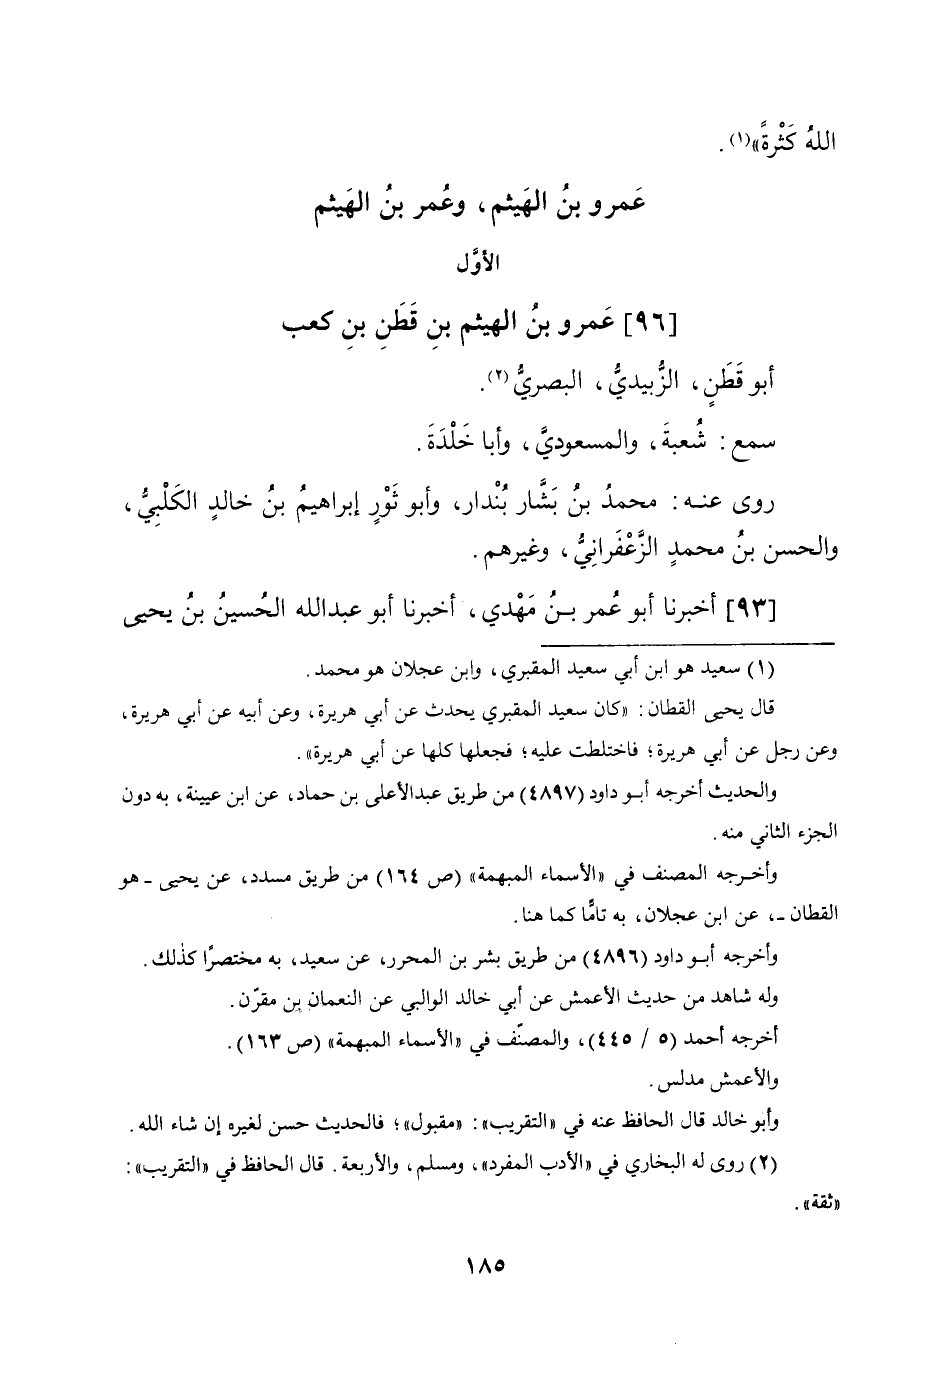 اللهُ كَثْرةً»(١).
عَمرو بنُ الهَيثم، وعُمر بنُ الهَيثم
الأوَّل
[٩٦] عَمرو بنُ الهيثم بنِ قَطَنِ بنِ كعب
أبو قَطَنٍ، الزُّبيديُّ، البصريُّ(٢).
سمع: شُعبةَ، والمسعوديَّ، وأبا خَلْدَةَ.
روى عنه: محمدُ بنُ بَشَّار بُنْدار، وأبو ثَوْرٍ إبراهيمُ بنُ خالدٍ الكَلْبِيُّ،
والحسن بنُ محمدٍ الزَّعْفَرانِيُّ، وغيرهم.
[٩٣] أخبرنا أبو عُمر بنُ مَهْدي، أخبرنا أبو عبدالله الحُسينُ بنُ يحيى
(١) سعيد هو ابن أبي سعيد المقبري، وابن عجلان هو محمد.
قال يحيى القطان: «كان سعيد المقبري يحدث عن أبي هريرة، وعن أبيه عن أبي هريرة،
وعن رجل عن أبي هريرة؛ فاختلطت عليه؛ فجعلها كلها عن أبي هريرة».
والحديث أخرجه أبو داود (٤٨٩٧) من طريق عبدالأعلى بن حماد، عن ابن عيينة، به دون
الجزء الثاني منه.
وأخرجه المصنف في «الأسماء المبهمة» (ص ١٦٤) من طريق مسدد، عن يحيى ـ هو
القطان ـ، عن ابن عجلان، به تامًّا كما هنا.
وأخرجه أبو داود (٤٨٩٦) من طريق بشر بن المحرر، عن سعيد، به مختصرًا كذلك.
وله شاهد من حديث الأعمش عن أبي خالد الوالبي عن النعمان بن مقرّن.
أخرجه أحمد (٥ / ٤٤٥)، والمصنّف في «الأسماء المبهمة» (ص ١٦٣).
والأعمش مدلس.
وأبو خالد قال الحافظ عنه في «التقريب»: «مقبول»؛ فالحديث حسن لغيره إن شاء الله.
(٢) روى له البخاري في «الأدب المفرد»، ومسلم، والأربعة. قال الحافظ في «التقريب»:
«ثقة».
١٨٥